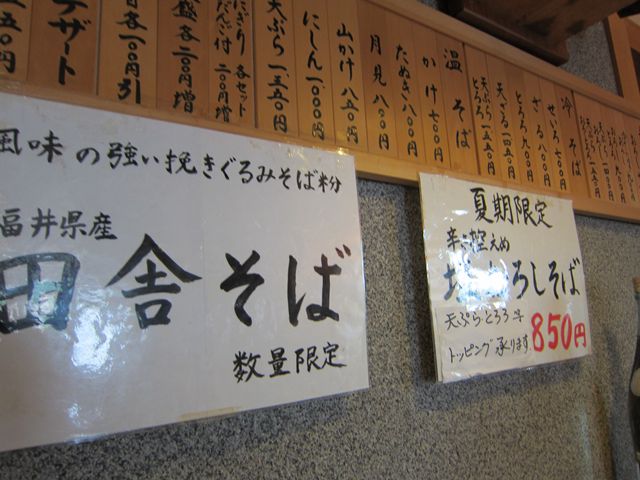 冷そば
せいろ 七〇〇円
ざる 八〇〇円
とろろ 九〇〇円
天ざる 一四五〇円
天ぷらとろろ 一五五〇円
温そば
かけ 七〇〇円
たぬき 八〇〇円
月見 八〇〇円
山かけ 八五〇円
にしん 一、〇〇〇円
天ぷら 一、三五〇円
にぎり 各セット
だんご付 二〇〇円増
盛各二〇〇円増
各一〇〇円引
デザート
風味の強い挽きぐるみそば粉
福井県産
田舎そば
数量限定
夏期限定
辛さ控えめ
ろしそば
天ぷらとろろ
トッピング承ります
850円